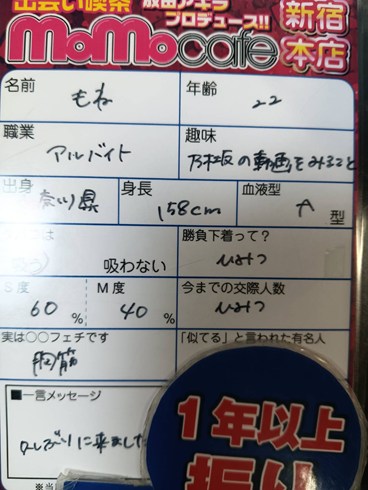 出会い喫茶 成田アキラ
プロデュース!!
MoMocafe
新宿
本店
名前 もね
年齢 22
職業 アルバイト
趣味 乃木坂の動画をみること
出身 奈川県
身長 158cm
血液型 A型
は
吸わない
勝負下着って? ひみつ
S度 60%
M度 40%
今までの交際人数 ひみつ
実は○○フェチです
「似てる」と言われた有名人
■一言メッセージ
久しぶりに来ました
※当
1年以上
振り